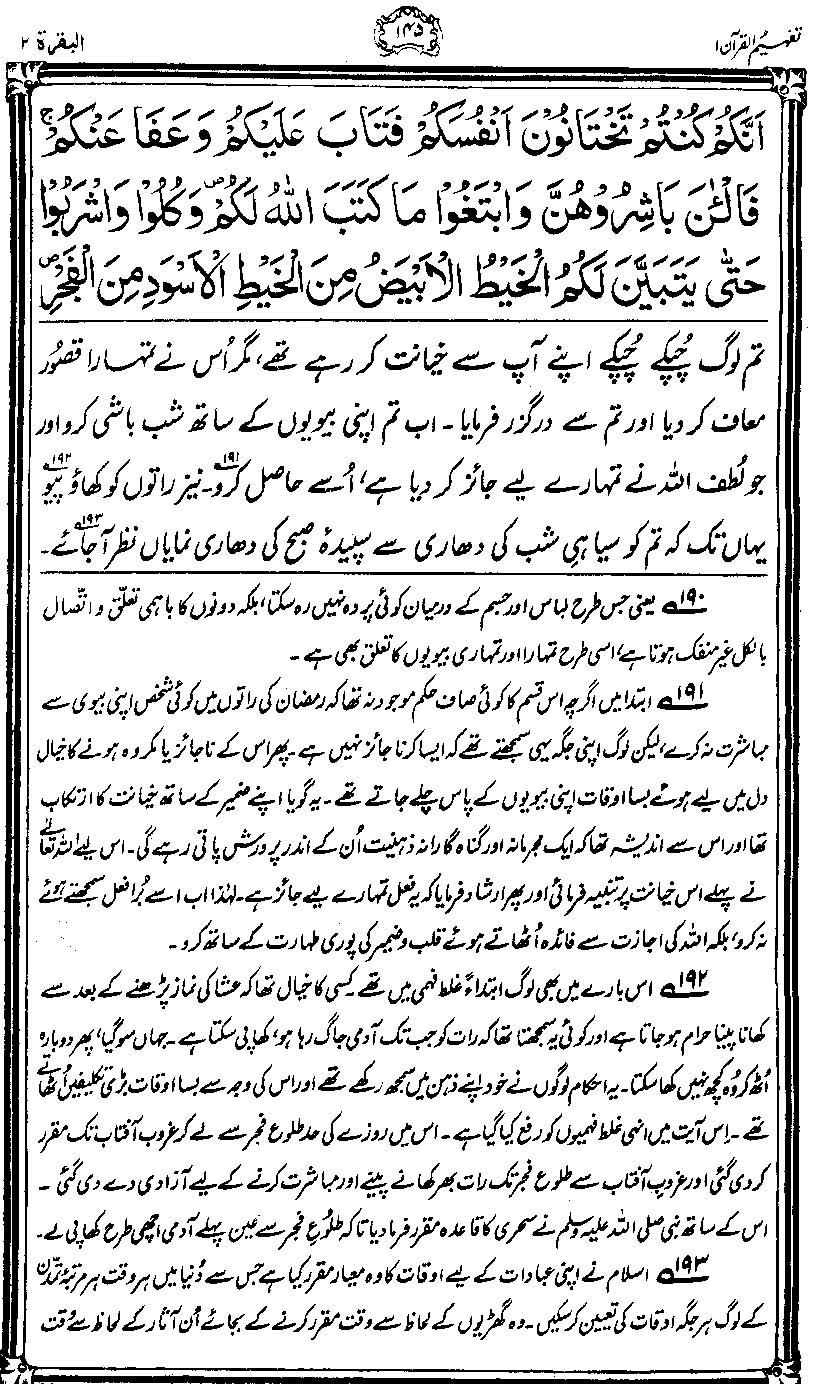 تفہیم القرآن ۱
۱۴۵
البقرۃ ۲
اَنَّكُمْ كُنْتُمْ تَخْتَانُوْنَ اَنْفُسَكُمْ فَتَابَ عَلَيْكُمْ وَعَفَا عَنْكُمْ ۚ
فَالْـٰٔنَ بَاشِرُوْهُنَّ وَابْتَغُوْا مَا كَتَبَ اللّٰهُ لَكُمْ ۪ وَكُلُوْا وَاشْرَبُوْا
حَتّٰى يَتَبَيَّنَ لَكُمُ الْخَيْطُ الْاَبْيَضُ مِنَ الْخَيْطِ الْاَسْوَدِ مِنَ الْفَجْرِ ۪
تم لوگ چُپکے چُپکے اپنے آپ سے خیانت کر رہے تھے، مگر اُس نے تمہارا قصُور
معاف کر دیا اور تم سے درگزر فرمایا۔ اب تم اپنی بیویوں کے ساتھ شب باشی کرو اور
جو لُطف اللہ نے تمہارے لیے جائز کر دیا ہے، اُسے حاصل کرو۔۱۹۱ نیز راتوں کو کھاؤ پیو۱۹۲
یہاں تک کہ تم کو سیاہیِ شب کی دھاری سے سپیدۂ صبح کی دھاری نمایاں نظر آ جائے۔۱۹۳
۱۹۰ یعنی جس طرح لباس اور جسم کے درمیان کوئی پردہ نہیں رہ سکتا، بلکہ دونوں کا باہمی تعلق و اتّصال
بالکل غیر منفک ہوتا ہے، اسی طرح تمہارا اور تمہاری بیویوں کا تعلق بھی ہے۔
۱۹۱ ابتدا میں اگرچہ اس قسم کا کوئی صاف حکم موجود نہ تھا کہ رمضان کی راتوں میں کوئی شخص اپنی بیوی سے
مباشرت نہ کرے، لیکن لوگ اپنی جگہ یہی سمجھتے تھے کہ ایسا کرنا جائز نہیں ہے۔ پھر اس کے ناجائز یا مکروہ ہونے کا خیال
دل میں لیے ہوئے بسا اوقات اپنی بیویوں کے پاس چلے جاتے تھے۔ یہ گویا اپنے ضمیر کے ساتھ خیانت کا ارتکاب
تھا اور اس سے اندیشہ تھا کہ ایک مجرمانہ اور گناہ گارانہ ذہنیت اُن کے اندر پرورش پاتی رہے گی۔ اس لیے اللہ تعالیٰ
نے پہلے اس خیانت پر تنبیہ فرمائی اور پھر ارشاد فرمایا کہ یہ فعل تمہارے لیے جائز ہے۔ لہٰذا اب اسے بُرا فعل سمجھتے ہوئے
نہ کرو، بلکہ اللہ کی اجازت سے فائدہ اُٹھاتے ہوئے قلب و ضمیر کی پوری طہارت کے ساتھ کرو۔
۱۹۲ اس بارے میں بھی لوگ ابتداءً غلط فہمی میں تھے۔ کسی کا خیال تھا کہ عشا کی نماز پڑھنے کے بعد سے
کھانا پینا حرام ہو جاتا ہے اور کوئی یہ سمجھتا تھا کہ رات کو جب تک آدمی جاگ رہا ہو، کھا پی سکتا ہے۔ جہاں سو گیا، پھر دوبارہ
اُٹھ کر وُہ کچھ نہیں کھا سکتا۔ یہ احکام لوگوں نے خود اپنے ذہن میں سمجھ رکھے تھے اور اس کی وجہ سے بسا اوقات بڑی تکلیفیں اُٹھاتے
تھے۔ اِس آیت میں انہی غلط فہمیوں کو رفع کیا گیا ہے۔ اس میں روزے کی حد طلوع فجر سے لے کر غروب آفتاب تک مقرر
کر دی گئی اور غروبِ آفتاب سے طلوع فجر تک رات بھر کھانے پینے اور مباشرت کرنے کے لیے آزادی دے دی گئی۔
اس کے ساتھ نبی صلی اللہ علیہ وسلم نے سحری کا قاعدہ مقرر فرما دیا تاکہ طلُوعِ فجر سے عین پہلے آدمی اچھی طرح کھا پی لے۔
۱۹۳ اسلام نے اپنی عبادات کے لیے اوقات کا وہ معیار مقرر کیا ہے جس سے دُنیا میں ہر وقت ہر مرتبۂ تمدّن
کے لوگ ہر جگہ اوقات کی تعیین کر سکیں۔ وہ گھڑیوں کے لحاظ سے وقت مقرر کرنے کے بجائے اُن آثار کے لحاظ سے وقت